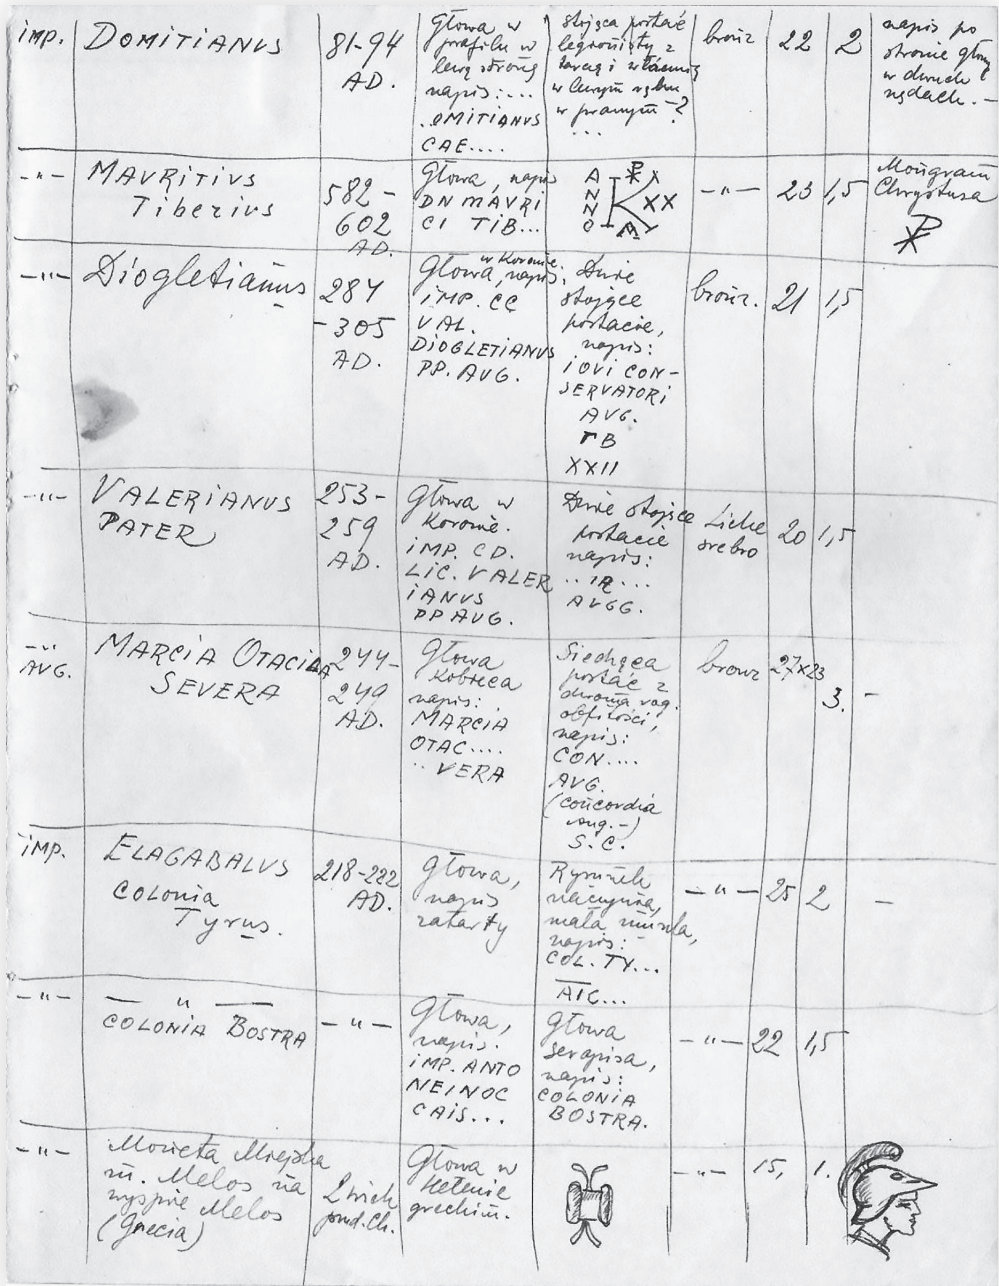 imp. DOMITIANUS 81-94 AD. Głowa w profilu w lewą stronę napis:... .OMITIANUS CAE.... stojąca postać legionisty z tarczą i włócznią w lewym ręku w prawym -? ... bronz 22 2 napis po stronie głowy w dwuch rzędach. -
-"- MAVRITIVS Tiberius 582-602 AD. Głowa, napis DN MAVRI CI TIB... ANNO K XX A -"- 23 1,5 Monogram Chrystusa
-"- Diogletianus 284-305 AD. Głowa w koronie, napis: IMP. CC VAL. DIOGLETIANUS PP. AVG. Dwie stojące postacie, napis: IOVI CON-SERVATORI AVG. TB XXII bronz. 21 1,5
-"- VALERIANUS PATER 253-259 AD. Głowa w koronie. IMP. CD. LIC. VALER IANUS PP AVG. Dwie stojące postacie napis: ..IR... AVGG. Liche srebro 20 1,5
-"- AVG. MARCIA OTACILLA SEVERA 244-249 AD. Głowa kobieca napis: MARCIA OTAC.... ..VERA Siedząca postać z dwoma rog. obfitości, napis: CON.... AVG. (concordia aug.-) S.C. bronz 27x23 3. -
imp. ELAGABALUS COLONIA Tyrus. 218-222 AD. Głowa, napis zatarty Rysunek naczynia, mała muszla, napis: COL. TY... AIG... -"- 25 2 -
-"- -"- COLONIA BOSTRA -"- Głowa, napis. IMP. ANTO NEINOC CAIS... Głowa Serapisa, napis: COLONIA BOSTRA. -"- 22 1,5
-"- Moneta Miejska m. Melos na wyspie Melos (Grecia) 2 wiek przed. Ch. Głowa w hełmie greckim. -"- 15, 1.